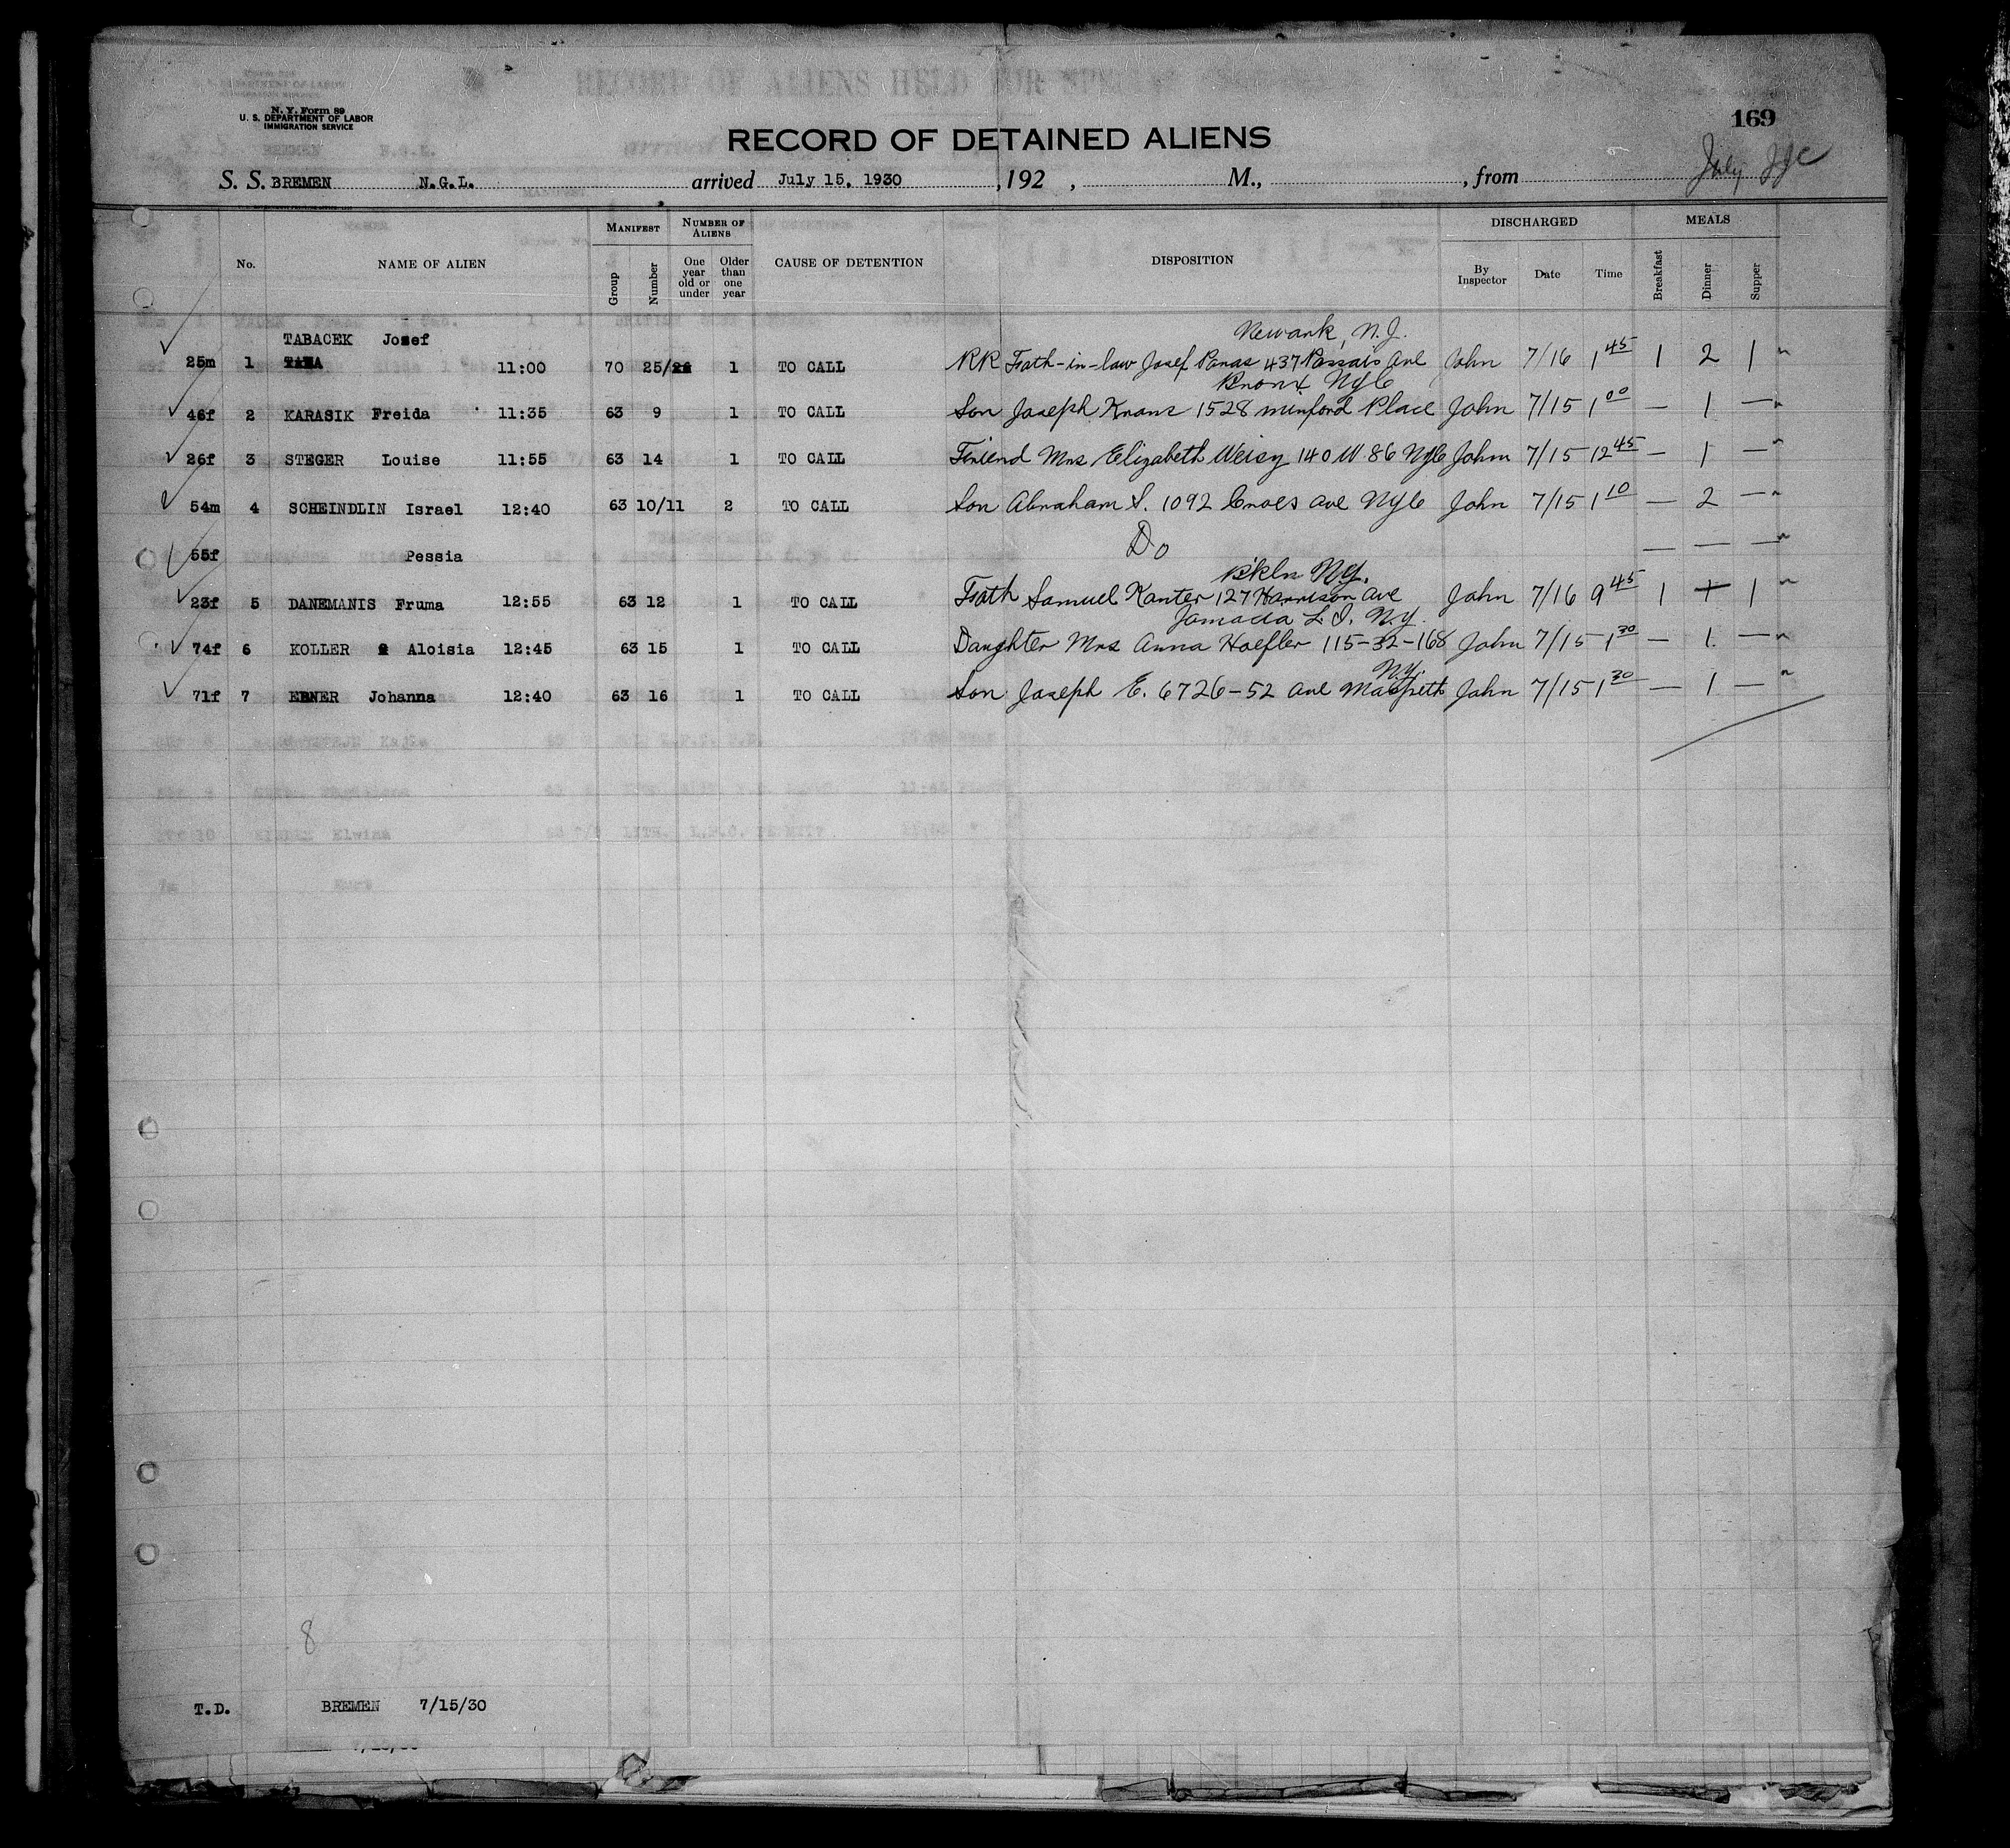 N. Y. Form 89
U. S. DEPARTMENT OF LABOR
IMMIGRATION SERVICE
169
RECORD OF DETAINED ALIENS
July JJC
S. S. BREMEN N.G.L. arrived July 15, 1930, 192 , M., , from
MANIFEST NUMBER OF ALIENS DISCHARGED MEALS
No. NAME OF ALIEN Group Number One year old or under Older than one year CAUSE OF DETENTION DISPOSITION By Inspector Date Time Breakfast Dinner Supper
TABACEK Josef Newark, N.J.
25m 1 11:00 70 25/ 1 TO CALL RR Fath-in-law Josef Panas 437 Passaic Ave John 7/16 1 45 1 2 1
Bronx NYC
46f 2 KARASIK Freida 11:35 63 9 1 TO CALL Son Joseph 1528 Minford Place John 7/15 1 00 — 1 —
26f 3 STEGER Louise 11:55 63 14 1 TO CALL Friend Mrs Elizabeth 140 W 86 NYC John 7/15 12 45 — 1 —
54m 4 SCHEINDLIN Israel 12:40 63 10/11 2 TO CALL Son Abraham S. 1092 Ave NYC John 7/15 1 10 — 2 —
55f Pessia Do — — —
Bkln NY.
23f 5 DANEMANIS Fruma 12:55 63 12 1 TO CALL Fath Samuel Kanter 127 Harrison Ave John 7/16 9 45 1 1 1
Jamaica L.I. N.Y.
74f 6 KOLLER Aloisia 12:45 63 15 1 TO CALL Daughter Mrs Anna Hoefler 115-32-168 John 7/15 1 30 — 1 —
N.Y.
71f 7 EBNER Johanna 12:40 63 16 1 TO CALL Son Joseph E. 6726-52 Ave Maspeth John 7/15 1 30 — 1 —
8
T.D. BREMEN 7/15/30